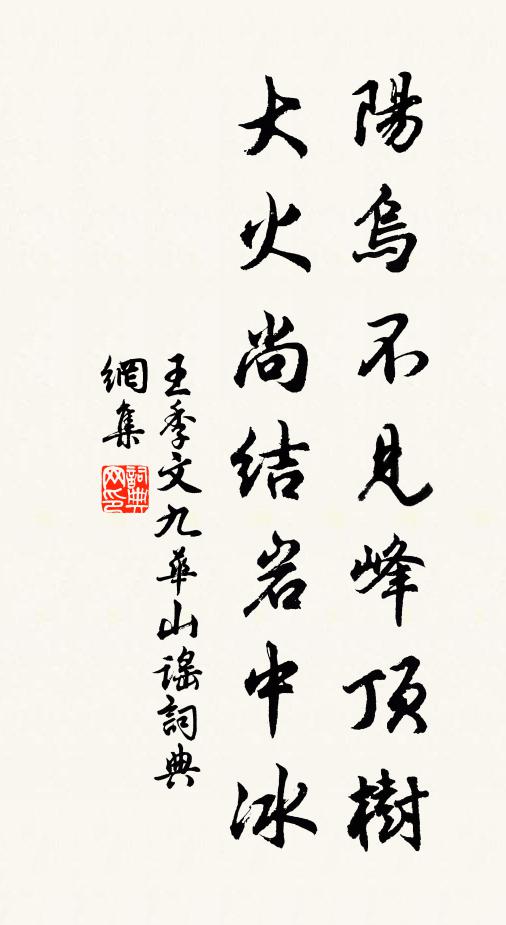 陽烏不見峰頂樹
大火尚结岩中冰
王季文九華山谣詞典
網集
詞典
网印